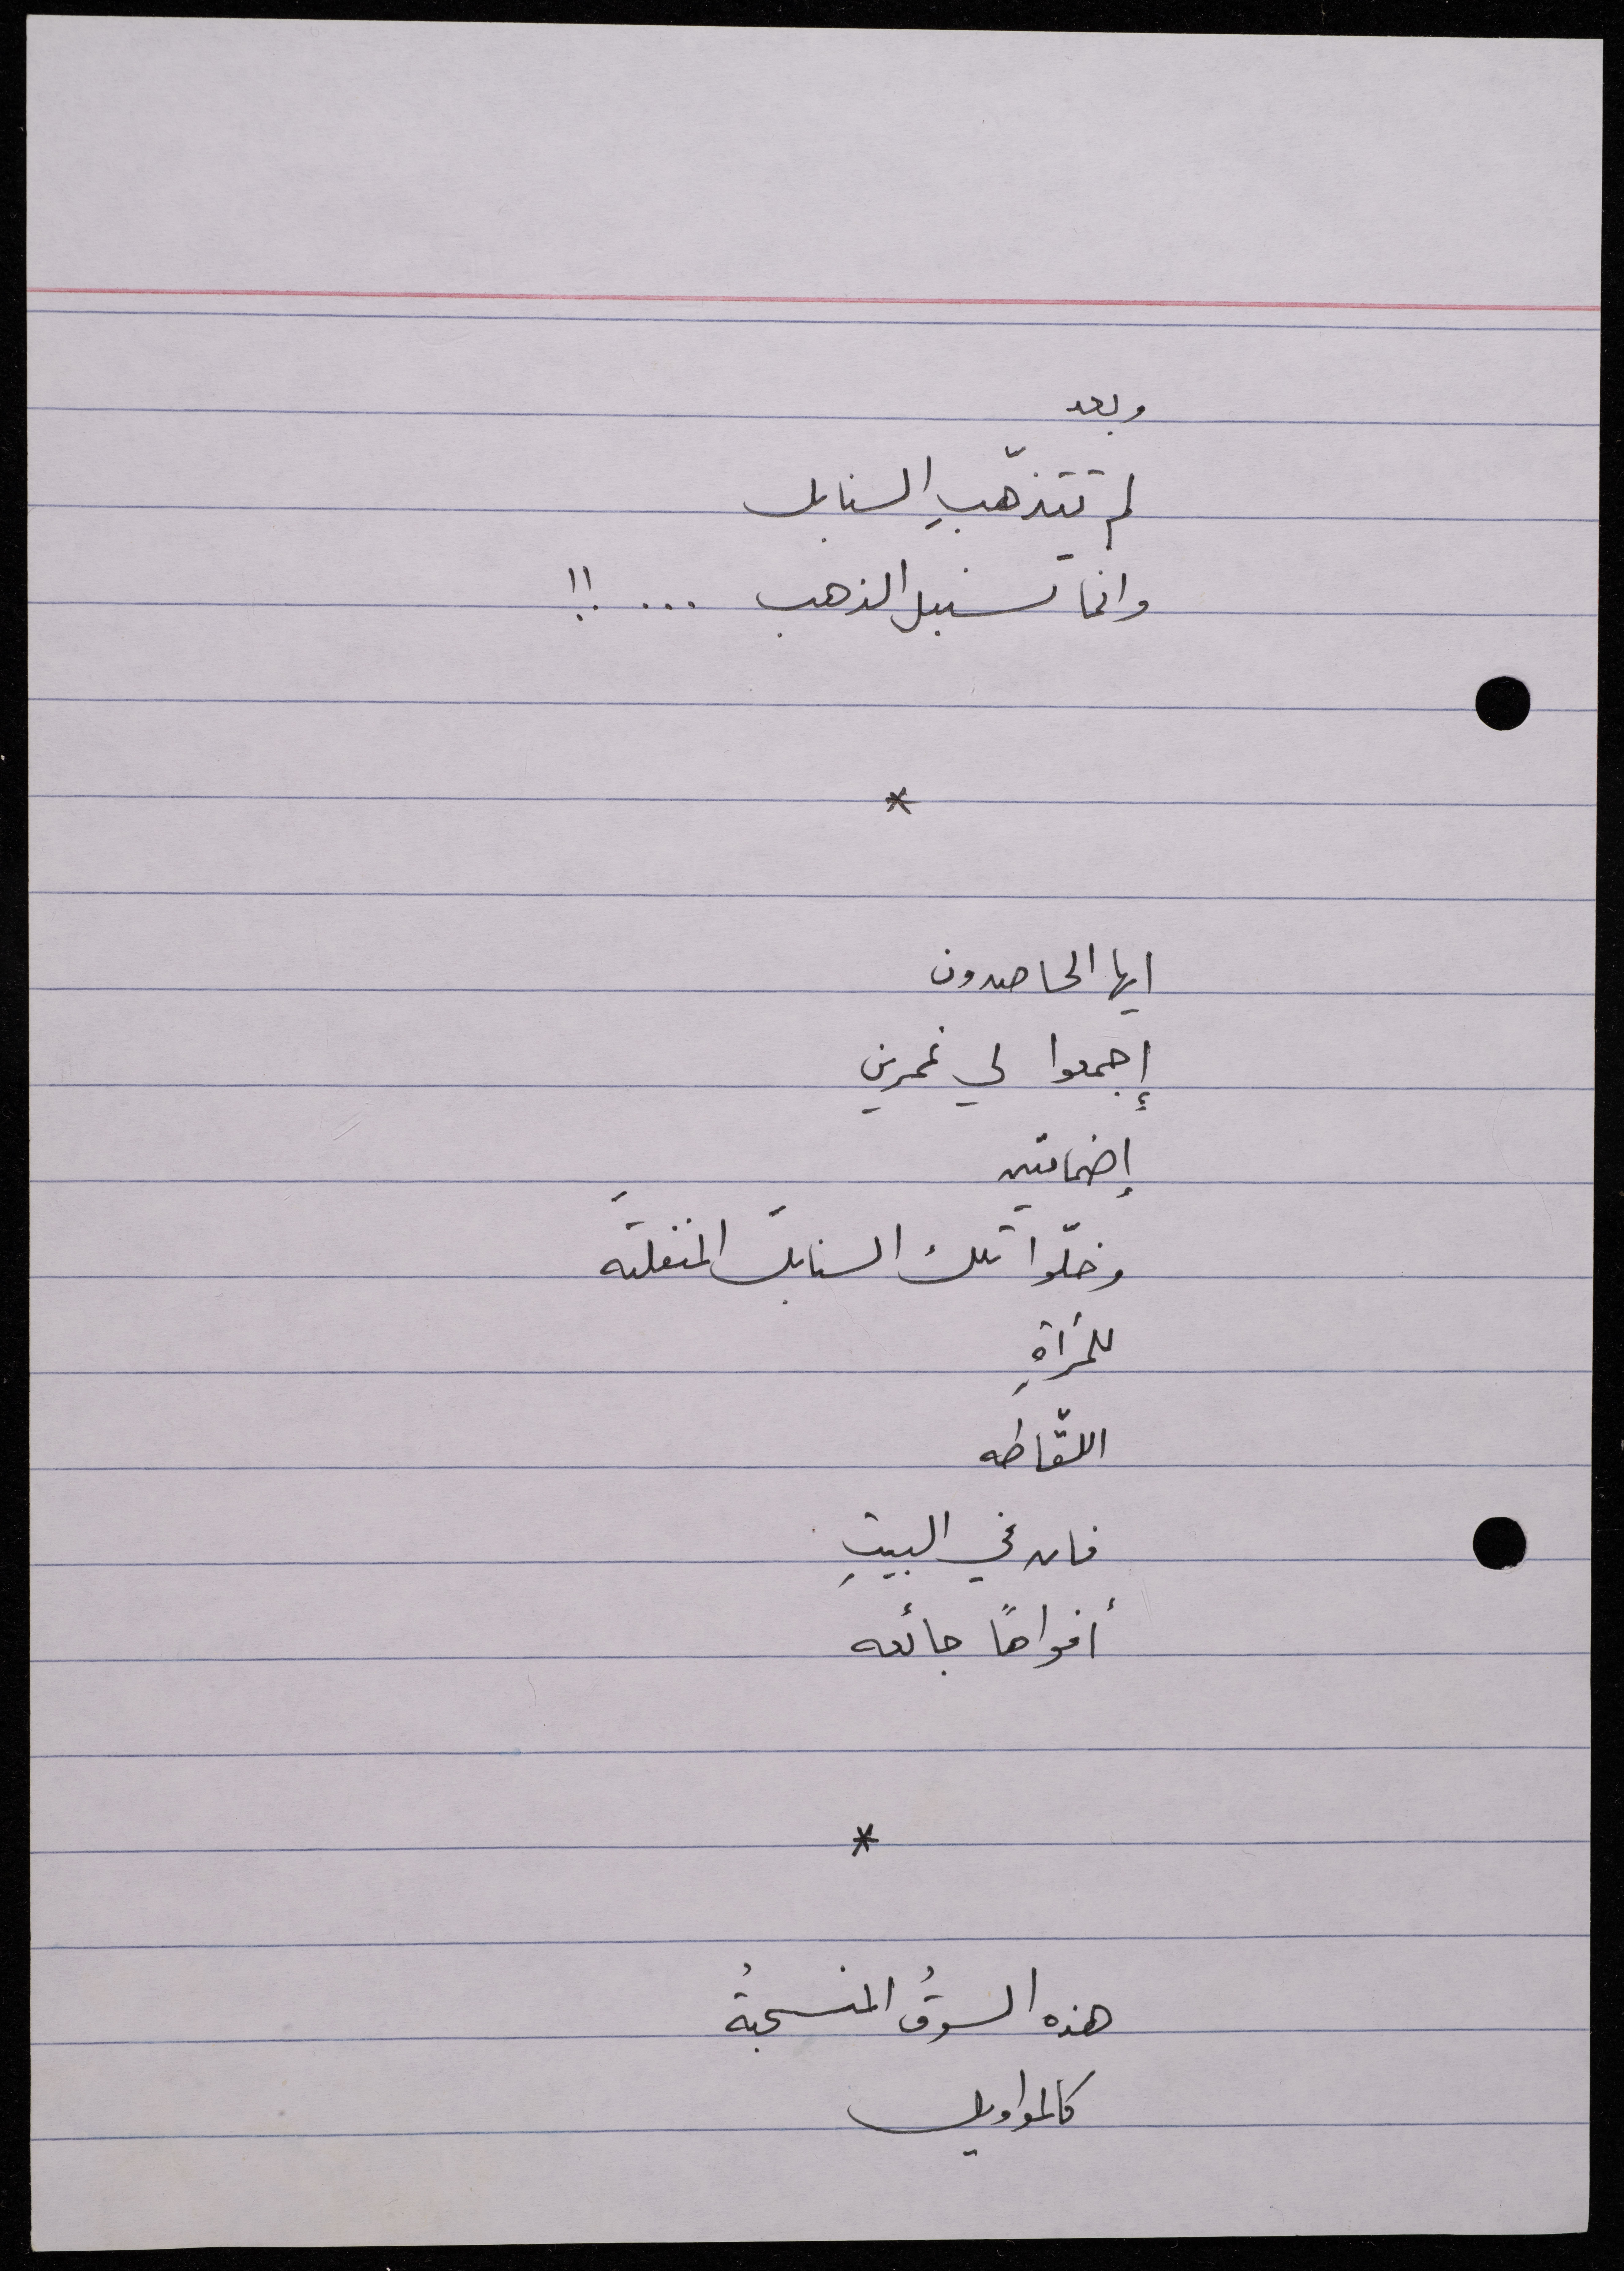 وبعد
لم تتذهّبِ السنابل
وانما تسنبل الذهب ... !!
*
ايها الحاصدون
إجمعوا لي غمرين
إضمامتين
وخلّوا تلك السنابلَ المنفلتَه
للمرأةِ
اللقّاطه
فان في البيتِ
أفواهاً جائعه
*
هذه السوقُ المنسحبةُ
كالمواويل